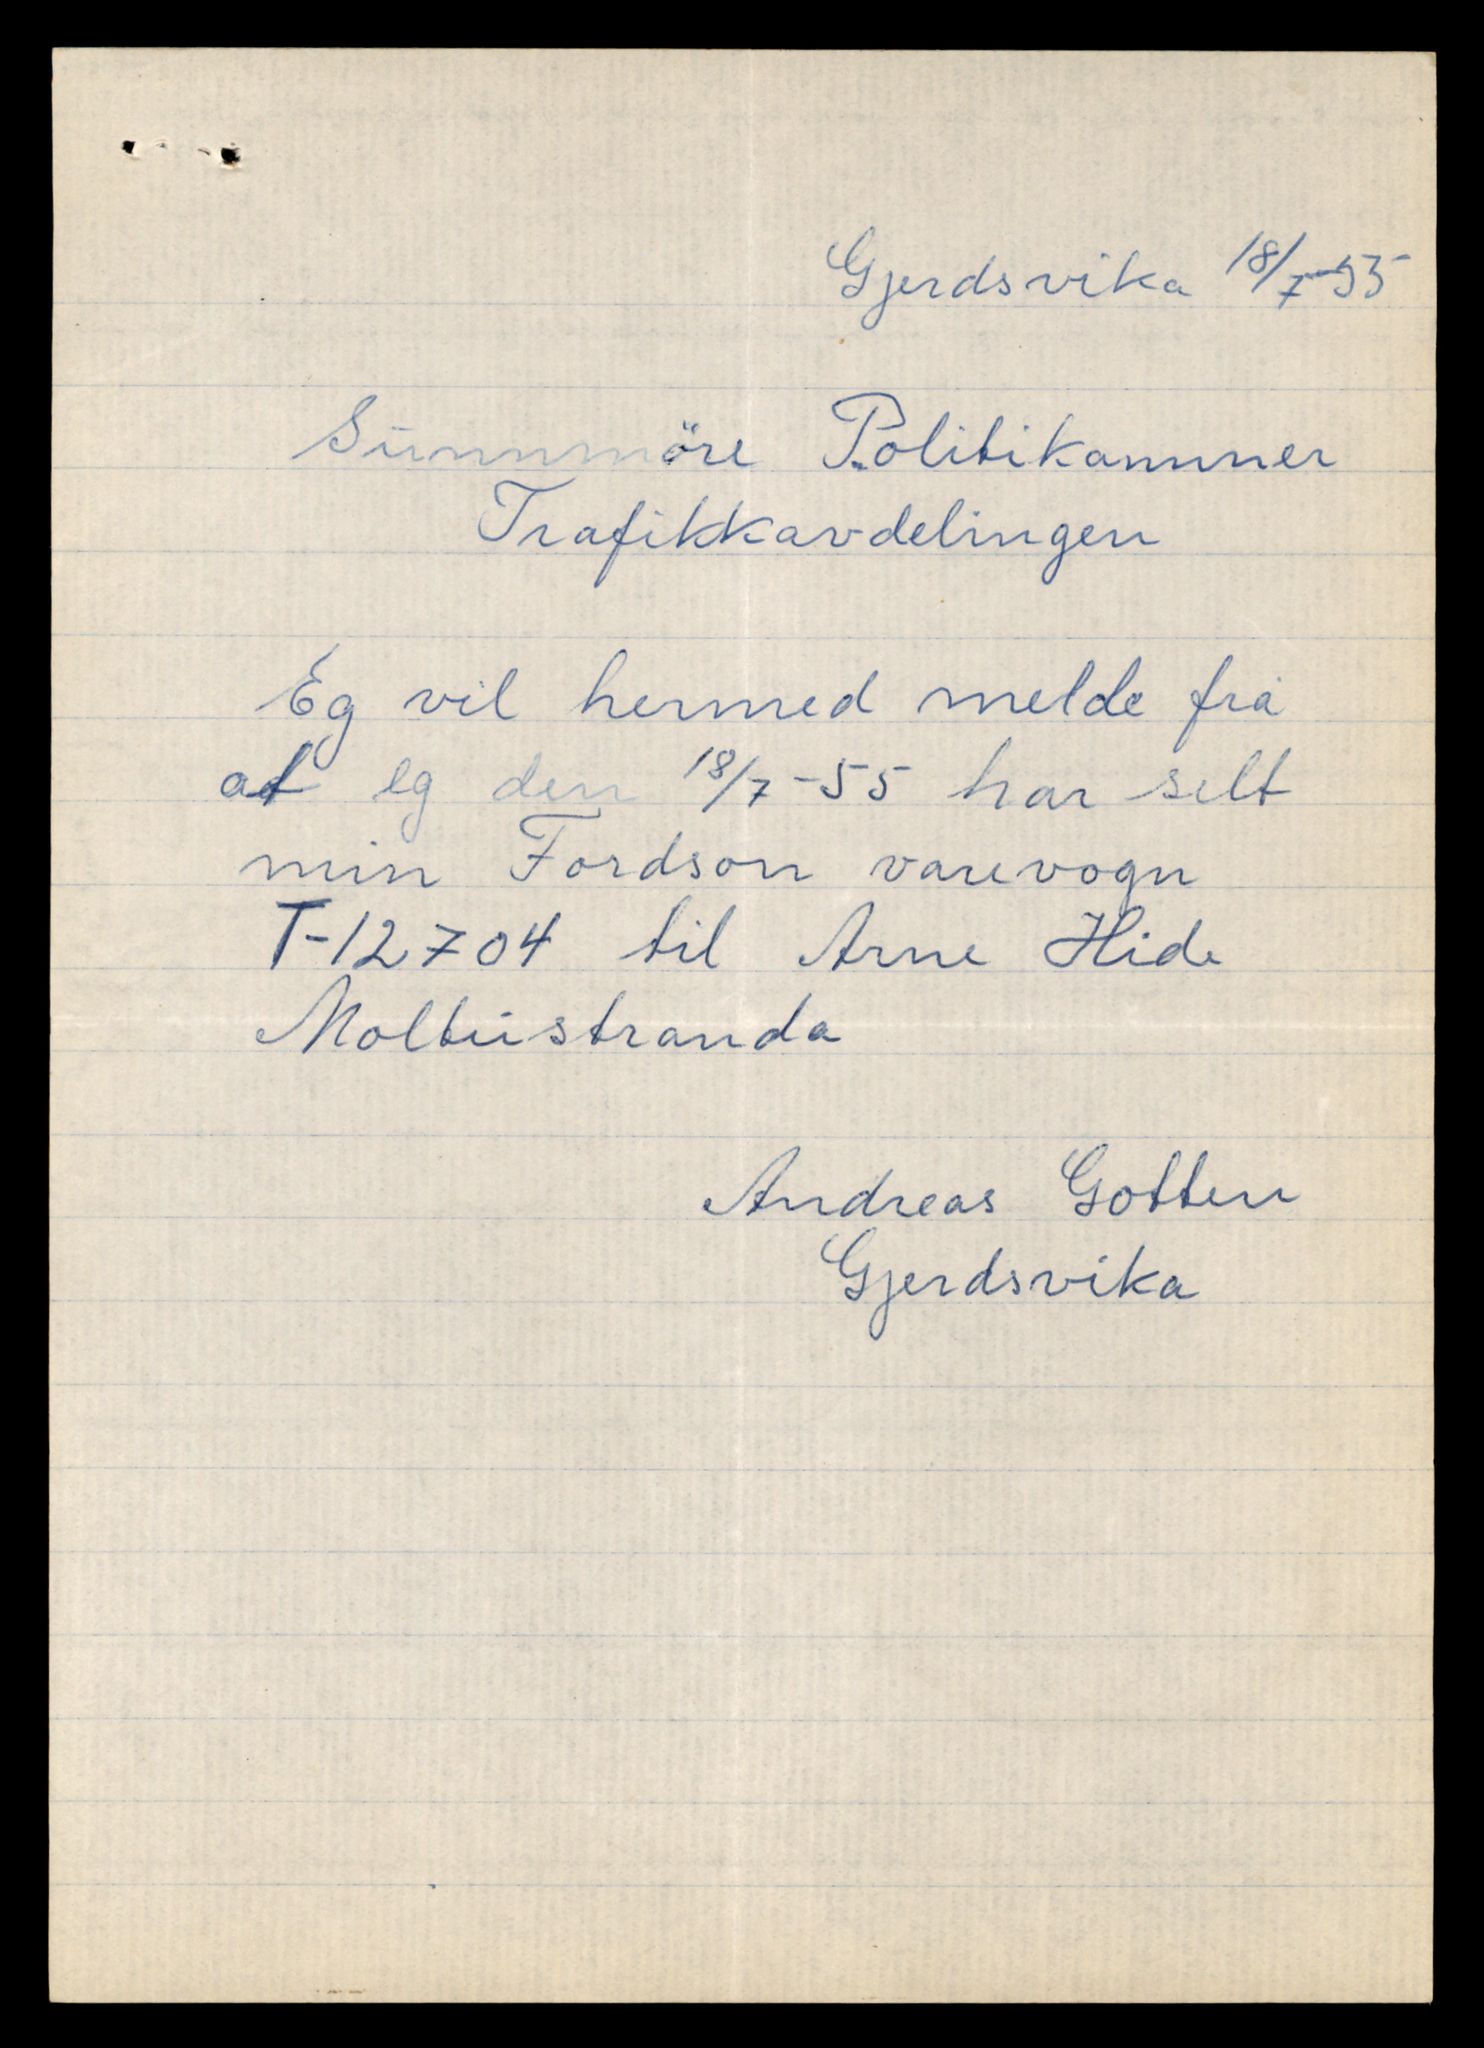 Gjerdsvika 18/7-55
Sunnmöre Politikammer
Trafikkavdelingen
Eg vil hermed melde frå
at eg den 18/7-55 har selt
min Fordson varevogn
T-12704 til Arne Hide
Moltustranda
Andreas Gotten
Gjerdsvika